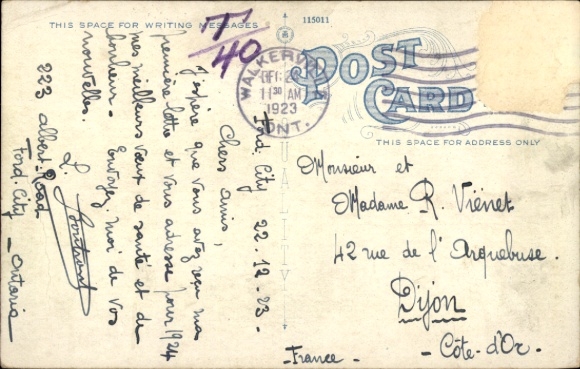 THIS SPACE FOR WRITING MESSAGES
115011
T/40
WALKERVILLE
11 30 AM
1923
ONT.
POST CARD
THIS SPACE FOR ADDRESS ONLY
Ford. City 22.12.23.
Chers amis,
J'espère que vous avez reçu ma
première lettre et vous adresse pour 1924
mes meilleurs vœux de santé et de
bonheur. Envoyez moi de vos
nouvelles.
223 Albert-Road
Ford. City – Ontario
Monsieur et
Madame R. Viénet
42 rue de l'Arquebuse.
Dijon
– Côte-d'Or. –
– France –